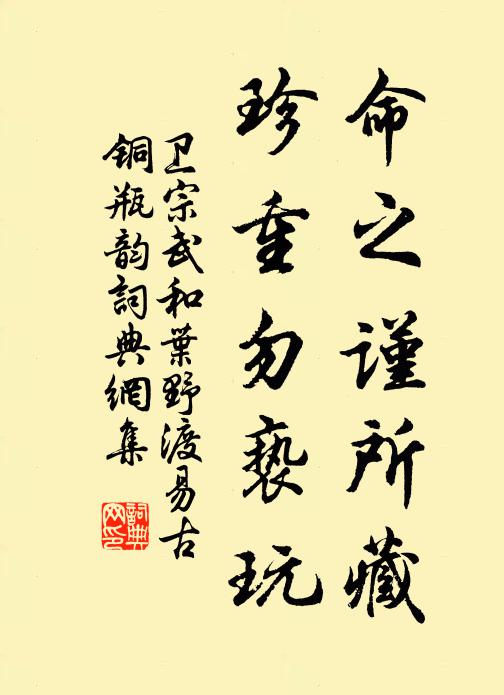 命之谨所藏
珍重勿亵玩
卫宗武和葉野渡易古
铜瓶韵詞典網集
詞典网印